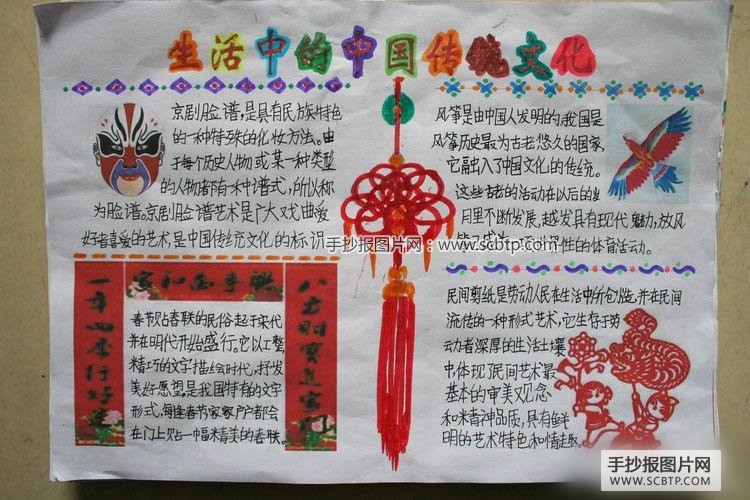 生活中的中国传统文化
京剧脸谱,是具有民族特色
的一种特殊的化妆方法。由
于每个历史人物或某一种类型
的人物都有一种谱式,所以称
为脸谱。京剧脸谱艺术是广大戏曲爱
好者喜爱的艺术,是中国传统文化的标识
风筝是由中国人发明的,我国是
风筝历史最为古老悠久的国家,
它融入了中国文化的传统。
这些古老的活动在以后的
月里不断发展,越发具有现代魅力,放风
性的体育活动。
手抄报图片网:www.scbtp.com
一年四季行好运
家和万事兴
八方财宝进家门
春节贴春联的民俗起于宋代
并在明代开始盛行。它以工整,
精巧的文字描绘时代,抒发
美好愿望,是我国特有的文字
形式,每逢春节家家户户都会
在门上贴一幅精美的春联。
民间剪纸是劳动人民在生活中所创造,并在民间
流传的一种形式艺术,它生存于劳
动者深厚的生活土壤
中,体现了民间艺术最
基本的审美观念
和精神品质,具有鲜
明的艺术特色和情趣。
手抄报图片网
WWW.SCBTP.COM